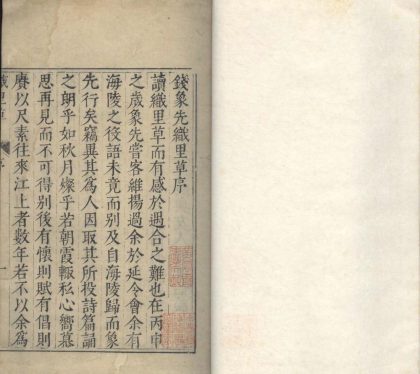 錢象先織里草序
讀織里草而有感於遇合之難也在丙申
之歲象先嘗客維揚過余於延令會余有
海陵之役語未竟而別及自海陵歸而象
先行矣竊異其為人因取其所投詩篇誦
之朗乎如秋月燦乎若朝霞輒私心嚮慕
思再見而不可得別後有懷則賦有倡則
賡以尺素往來江上者數年若不以余為
織里草 序 一